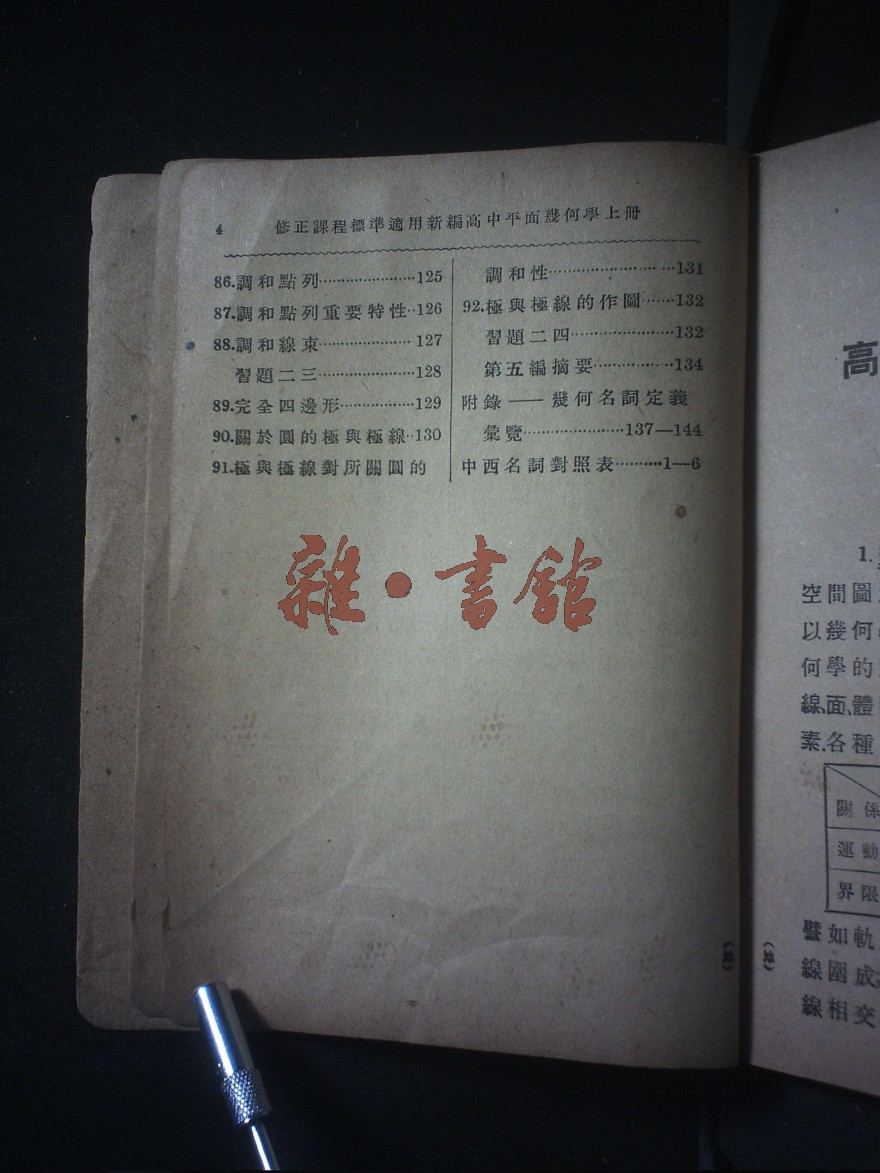 4 修正課程標準適用新編高中平面幾何學上冊
86.調和點列…………………125
87.調和點列重要特性‥126
88.調和線束…………………127
習題二三…………………128
89.完全四邊形……………129
90.關於圓的極與極線‥130
91.極與極線對所關圓的
調和性……………………131
92.極與極線的作圖……132
習題二四…………………132
第五編摘要……………134
附錄——幾何名詞定義
彙覽…………………137—144
中西名詞對照表………1—6
雜·書館
高
1.
空間圖
以幾何
何學的
線、面、體
素.各種
關係
運動
界限
譬如軌
線圍成
線相交